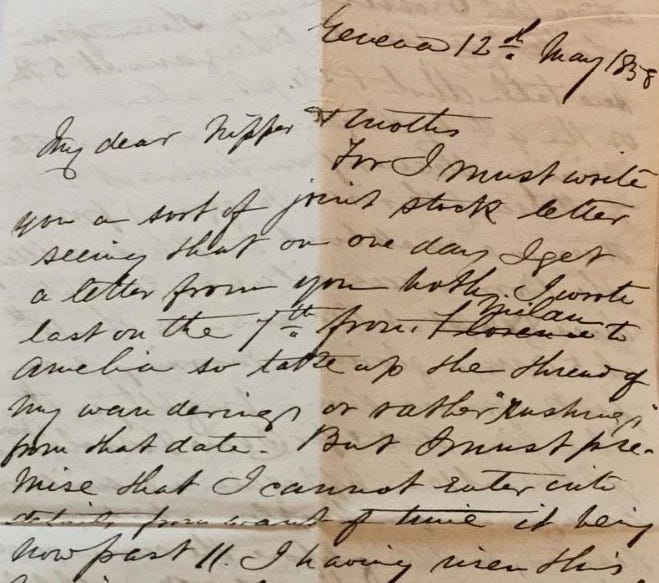 Geneva 12th May 1858
My dear Nipper & Mother
For I must write
you a sort of joint stock letter
seeing that on one day I get
a letter from you both. I wrote
Milan
last on the 7th from Florence to
Amelia so take up the thread of
my wanderings or rather "rushings"
from that date. But I must pre-
mise that I cannot enter into
details from want of time it being
now past 11. I having risen this